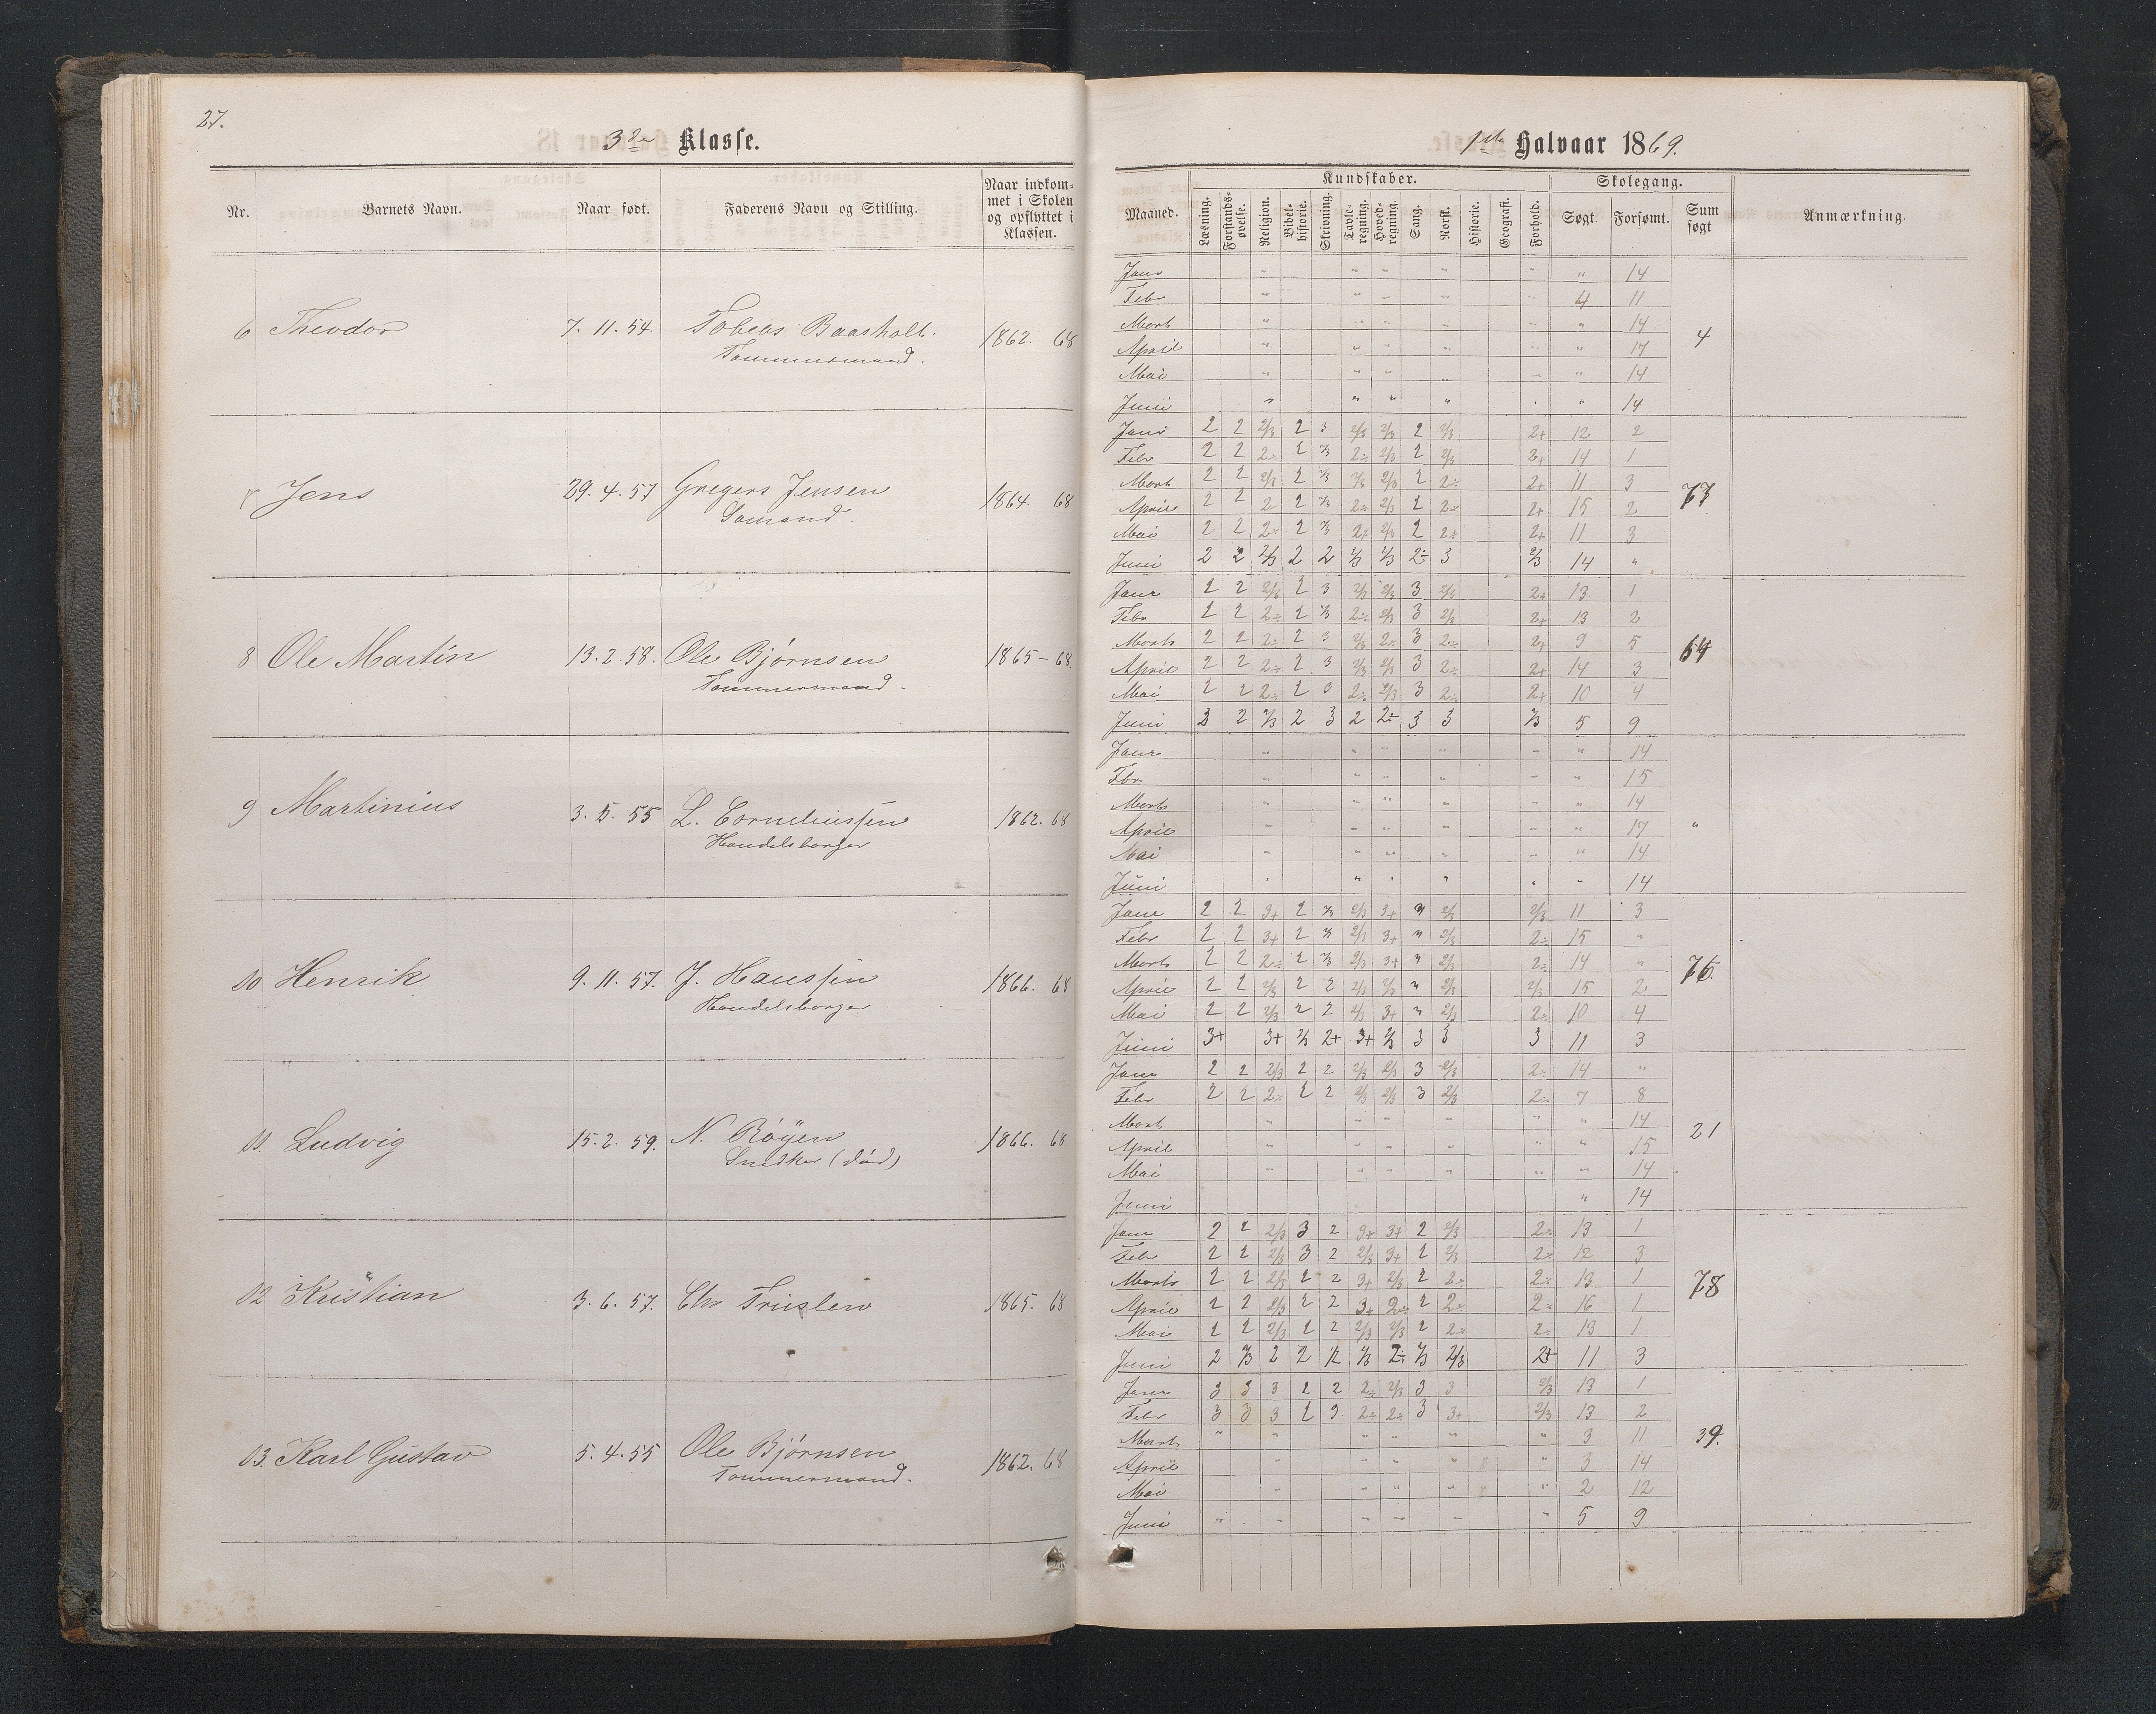 27.
3die Klasse.
Nr. Barnets Navn. Naar født. Faderens Navn og Stilling. Naar indkommet i Skolen og opflyttet i Klassen.
6 Theodor 7.11.54. Tobias Baasholt. 1862. 68
Tømmermand.
7 Jens 29.4.57 Gregers Jensen 1864. 68
Sømand.
8 Ole Martin 13.2.58. Ole Bjørnsen 1865-68
Tømmermand.
9 Martinius 3.5.55 L. Corneliussen 1862.68
Handelsborger
10 Henrik 9.11.57. J. Hanssen 1866. 68
Handelsborger
11 Ludvig 15.2.59. N. Röyen 1866. 68
Snedker (død)
12 Kristian 3.6.57. Chr 1865. 68
13. Karl Gustav 5.4.55 Ole Bjørnsen 1862. 68
Tømmermand.
1ste Halvaar 1869.
Kundskaber. Skolegang.
Maaned. Læsning. Forstandsøvelse. Religion. Bibelhistorie. Skrivning. Tavleregning. Hovedregning. Sang. Norsk. Historie. Geografi. Forhold. Søgt. Forsømt. Sum søgt Anmærkning.
Janr " " " " " " 14
Febr " " " " " 4 11
Marts " " " " " " 14
4
April " " " " " " 17
Mai " " " " " " 14
Juni " " " " " " 14
Janr 2 2 2/3 2 3 2/3 2/3 2 2/3 2+ 12 2
Febr 2 2 2÷ 2 2/3 2÷ 2/3 2 2/3 2+ 14 1
Marts 2 2 2/3 2 2/3 2/3 2/3 2 2÷ 2+ 11 3
73
April 2 2 2 2 2/3 2÷ 2/3 2 2÷ 2+ 15 2
Mai 2 2 2÷ 2 2/3 2÷ 2/3 2 2+ 2+ 11 3
Juni 2 2 2/3 2 2 2/3 2/3 2÷ 3 2/3 14 "
Janr 2 2 2/3 2 3 2/3 2/3 3 2/3 2+ 13 1
Febr 2 2 2÷ 2 2/3 2÷ 2/3 3 2/3 2+ 13 2
Marts 2 2 2÷ 2 3 2/3 2÷ 3 2÷ 2+ 9 5
64
April 2 2 2÷ 2 3 2/3 2/3 3 2÷ 2+ 14 3
Mai 2 2 2÷ 2 3 2÷ 2/3 3 2÷ 2+ 10 4
Juni 3 2 2/3 2 3 2 2÷ 3 3 2/3 5 9
Janr " " " " " " 14
Fbr " " " " " " 15
Marts " " " " " " 14
April " " " " " " 17
"
Mai " " " " " " 14
Juni " " " " " " 14
Janr 2 2 3+ 2 2/3 2/3 3+ " 2/3 2/3 11 3
Febr 2 2 3+ 2 2/3 2/3 3+ " 2/3 2÷ 15 "
Marts 2 2 2÷ 2 2/3 2/3 3+ " 2/3 2÷ 14 "
76.
April 2 2 2/3 2 2 2/3 2/3 " 2/3 2/3 15 2
Mai 2 2 2/3 2 2 2/3 3+ " 2/3 2÷ 10 4
Juni 3+ 3+ 2/3 2+ 3+ 2/3 3 3 3 11 3
Janr 2 2 2/3 2 2 2/3 2/3 3 2/3 2÷ 14 "
Febr 2 2 2÷ 2 2 2/3 2/3 3 2/3 2÷ 7 8
Marts " " " " " " 14
21
April " " " " " " 15
Mai " " " " " " 14
Juni " 14
Janr 2 2 2/3 3 2 3+ 3+ 2 2/3 2÷ 13 1
Febr 2 2 2/3 3 2 2/3 3+ 2 2/3 2÷ 12 3
Marts 2 2 2/3 2 2 3+ 2/3 2 2÷ 2÷ 13 1
78
April 2 2 2/3 2 2 3+ 2÷ 2 2÷ 2÷ 16 1
Mai 2 2 2/3 2 2 2/3 2/3 2 2÷ 2÷ 13 1
Juni 2 2/3 2 2 2 2/3 2÷ 2/3 2/3 2+ 11 3
Janr 3 3 3 2 2 2÷ 2/3 3 3 2/3 13 1
Febr 3 3 3 2 3 2÷ 2÷ 3 3+ 2/3 13 2
Marts " " " " " " 3 11
39.
April " " " " " 3 14
Mai " " " " " 2 12
Juni " " " " " " 5 9